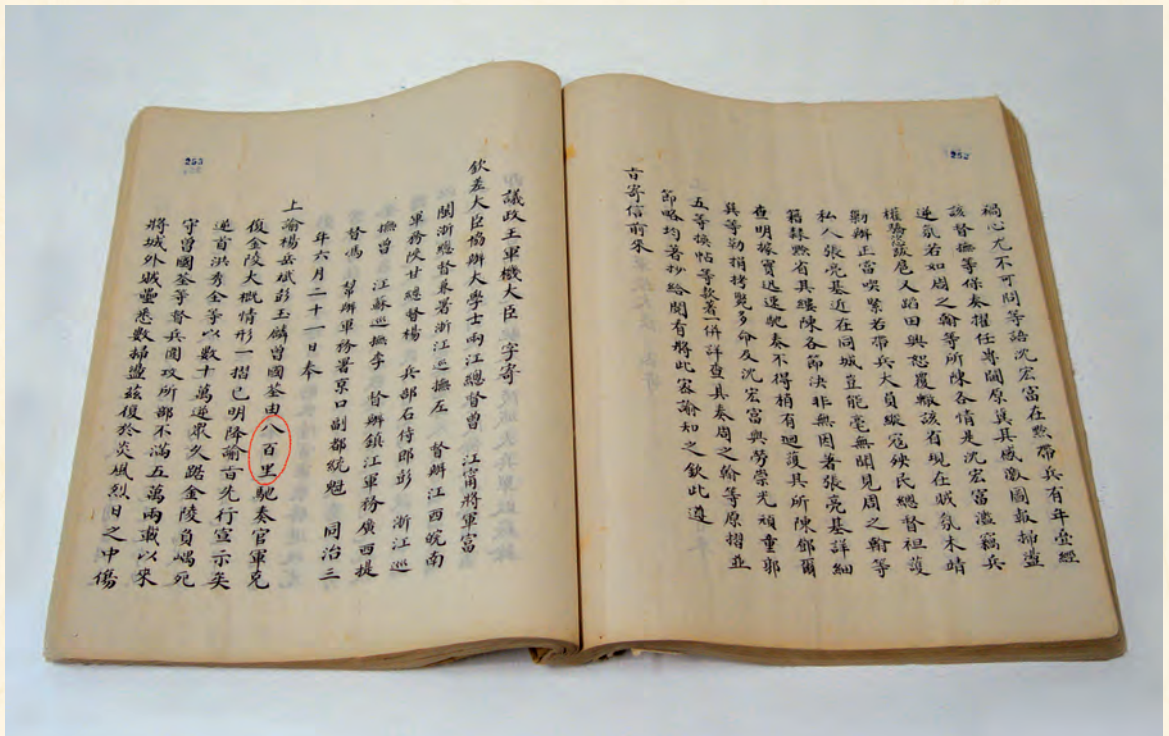 253
禍心尤不可問等語沈宏富在黔帶兵有年疊經
該督撫等保奏擢任專閫原冀其感激圖報掃盪
逆氛若如周之翰等所陳各情是沈宏富濫竊兵
權驕蹇跋扈又蹈田興恕覆轍該省現在賊氛未靖
勦辦正當喫緊若帶兵大員縱寇殃民總督袒護
私人張亮基近在同城豈能毫無聞見周之翰等
籍隸黔省其縷陳各節決非無因著張亮基詳細
查明據實迅速馳奏不得稍有迴護其所陳鄧爾
巽等勒捐拷斃多命及沈宏富與勞崇光頑童郭
五等換帖等款著一併詳查具奏周之翰等原摺並
節略均著抄給閱看將此密諭知之欽此遵
旨寄信前來
253
議政王軍機大臣 字寄
欽差大臣協辦大學士兩江總督曾 江甯將軍富
閩浙總督兼署浙江巡撫左 督辦江西皖南
軍務陝甘總督楊 兵部右侍郎彭 浙江巡
撫曾 江蘇巡撫李 督辦鎮江軍務廣西提
督馮 幫辦軍務署京口副都統魁 同治三
年六月二十一日奉
上諭楊岳斌彭玉麟曾國荃由八百里馳奏官軍克
復金陵大概情形一摺已明降諭旨先行宣示矣
逆首洪秀全等以數十萬逆眾久踞金陵負嵎死
守曾國荃等督兵圍攻所部不滿五萬兩載以來
將城外賊壘悉數掃盪茲復於炎風烈日之中傷